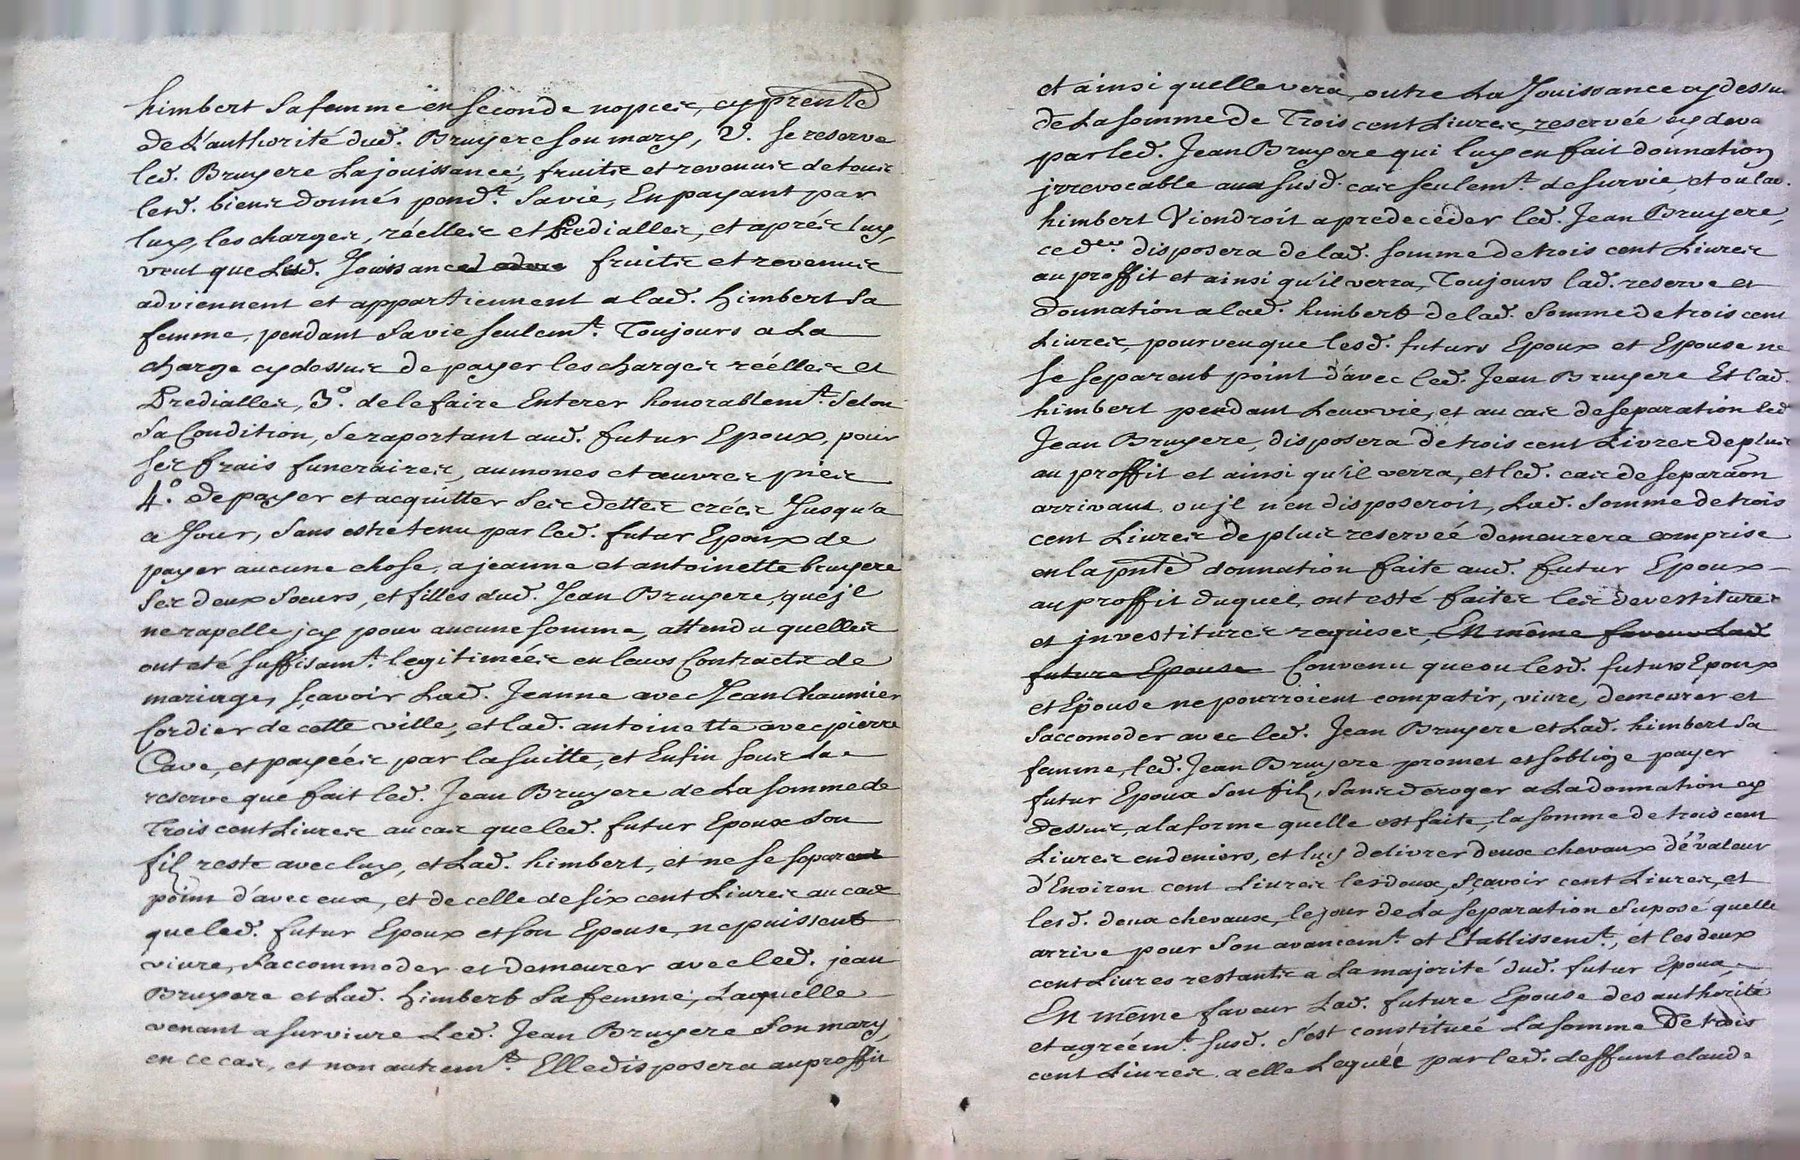 himbert sa femme en seconde nopces, cy pnte
de L'authorité dud. Bruyere son mary, 2°. se reserve
led. Bruyere La jouissance, fruits et revenus de tous
lesd. biens donnés pend.t Sa vie, En payant par
luy, les charges, réelles et Predialles, et aprés luy,
veut que Lesd. Jouissances fruits et revenus
adviennent et appartiennent a lad. himbert Sa
femme, pendant Sa vie seulem.t Toujours a La
charge cy dessus de payer les charges réelles et
Predialles, 3°. de le faire Enterer honorablem.t Selon
Sa Condition, Se raportant aud. futur Epoux, pour
ses frais funeraires, aumones et œuvres pies
4°. de payer et acquitter Ses dettes créés Jusqu'a
a Jour, Sans estre tenu par led. futur Epoux de
payer aucune chose, a jeanne et antoinette bruyere
Ses deux Sœurs, et filles dud. Jean Bruyere, que jl
ne rapelle jcy pour aucune somme, attendu quelles
ont eté suffisam.t legitimées en leurs Contracts de
mariage, sçavoir Lad. Jeanne avec Jean Chaumier
Cordier de cette ville, et lad. antoinette avec pierre
Cave, et payées par la suitte, et Enfin sous La
reserve que fait led. Jean Bruyere de La somme de
Trois cent Livres au cas que led. futur Epoux Son
fils reste avec luy, et Lad. himbert, et ne se separent
point d'avec eux, et de celle de six cent Livres au cas
que led. futur Epoux et son Epouse, ne puissent
vivre, S'accommoder et demeurer avec led. jean
Bruyere et Lad. himbert Sa femme, Laquelle
venant a survivre Led. Jean Bruyere Son mary,
en ce cas, et non autrem.t Elle disposera au proffit
et ainsi quelle vera, outre La Jouissance cy dessus
de La somme de Trois cent Livres, reservée cy deva
par led. Jean Bruyere qui luy en fait donnation
jrrevocable aux Susd. cas seulem.t de survie, et ou lad.
himbert Viendroit a predeceder led. Jean Bruyere,
ce d.er disposera de lad. somme de trois cent Livres
au proffit et ainsi qu'il verra, Toujours lad. reserve et
Donnation a lad. himbert de lad. Somme de trois cent
Livres, pourveu que lesd. futurs Epoux et Epouse ne
se separent point d'avec led. Jean Bruyere Et lad.
himbert pendant Leur vie, et au cas de separation led
Jean Bruyere, disposera de trois cent Livres de plus
au proffit et ainsi qu'il verra, et led. cas de separaon
arrivant ou jl n'en disposeroit, Lad. Somme de trois
cent Livres de plus reservéé demeurera comprise
en la pnte donnation faite aud. futur Epoux
au proffit duquel, ont esté faites les devestitures
et jnvestitures requises, En même faveur Lad
future Epouse Convenu que ou lesd. futurs Epoux
et Epouse ne pourroient compatir, vivre, demeurer et
S'accomoder avec led. Jean Bruyere et Lad. himbert Sa
femme, led. Jean Bruyere promet et s'oblige payer
futur Epoux Son fils, Sans deroger a La donnation cy
dessus, a la forme quelle est faite, la somme de trois cent
Livres en deniers, et luy delivrer deux chevaux de valeur
d'Environ cent Livres les deux, Sçavoir cent Livres, et
lesd. deux chevaux, le jour de La separation suposé quelle
arrive pour Son avancem.t et Etablissem.t, et les deux
cent Livres restants a La majorité dud. futur Epoux
En même faveur Lad. future Epouse des authorité
et agréem.t susd. S'est constituéé La somme De trois
cent Livres a elle Leguéé par led. deffunt claude